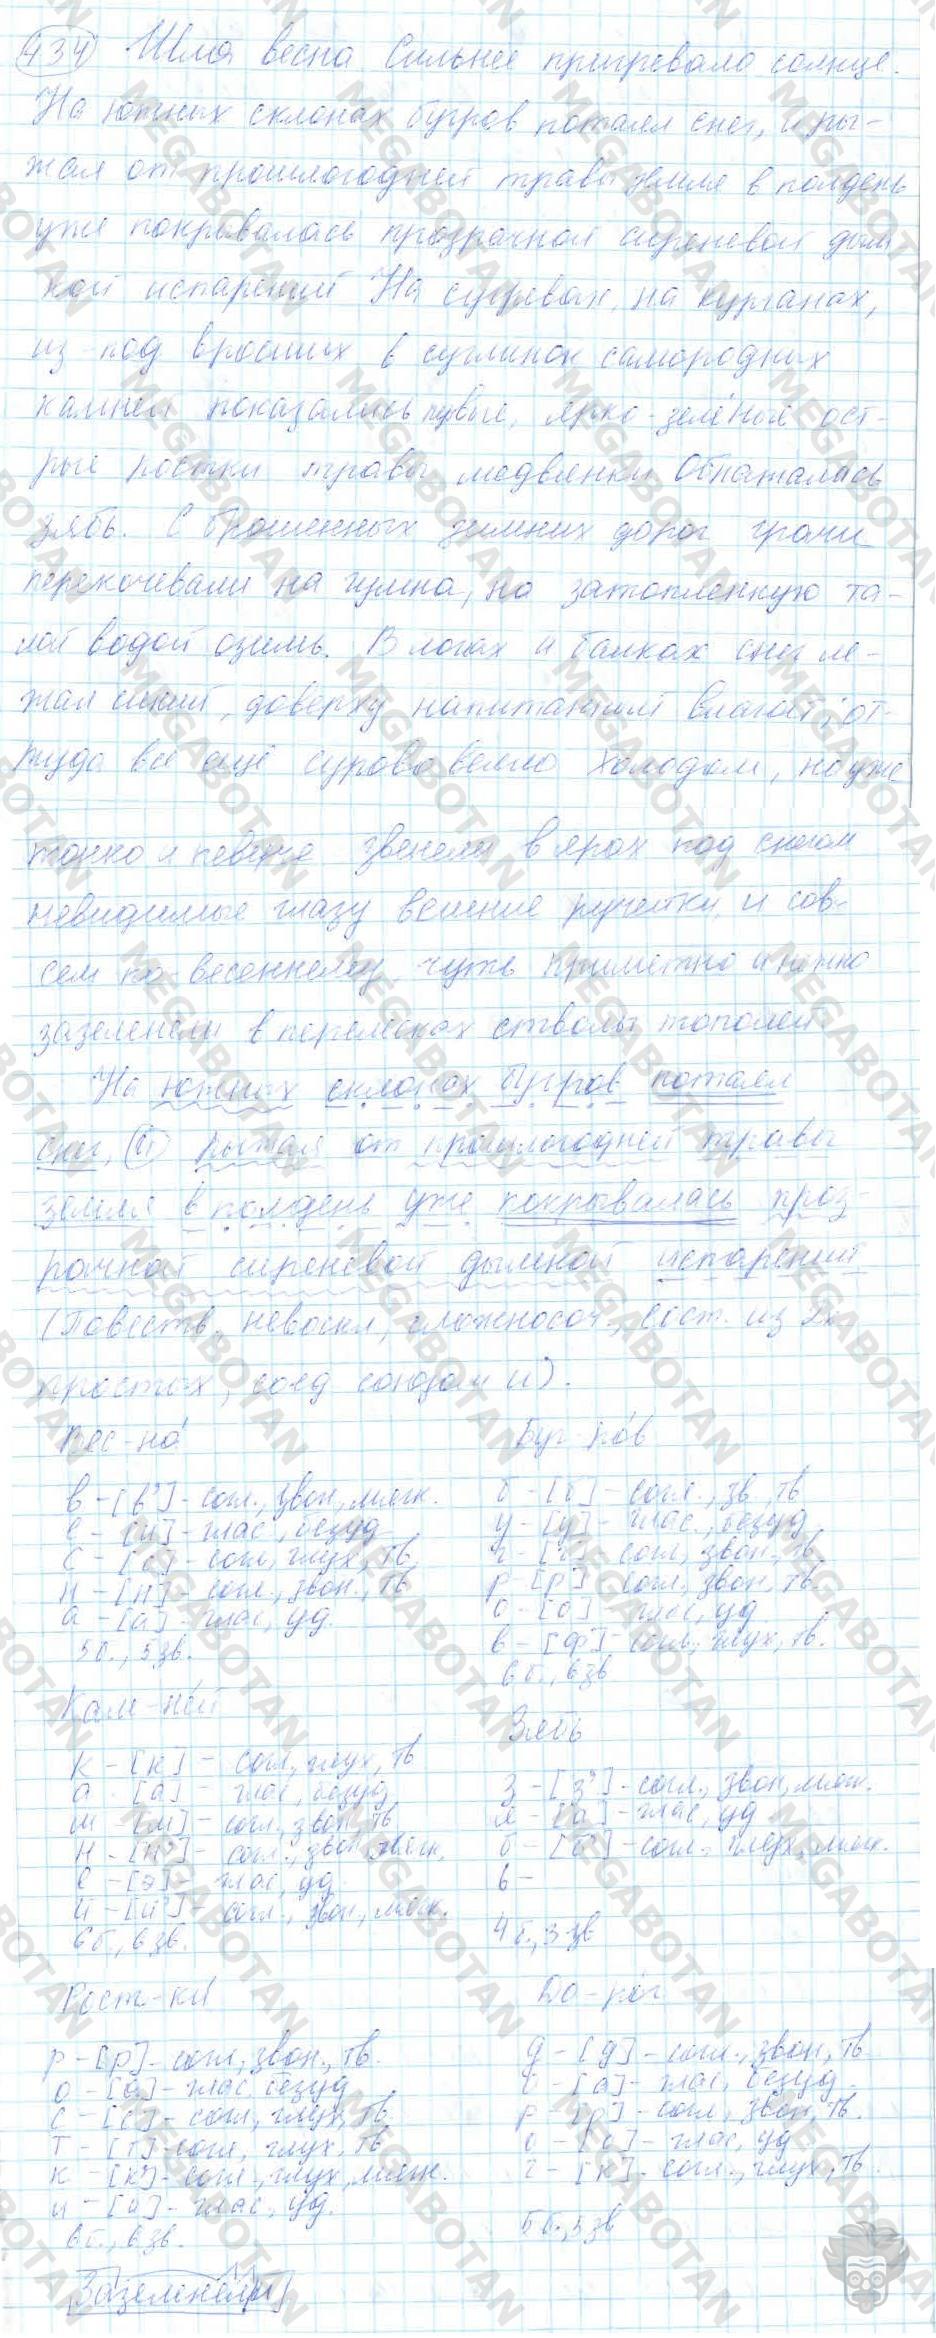 434 Шла весна Сильнее пригревало солнце.
На южных склонах бугров потаял снег, и ры-
жая от прошлогодней травы земля в полдень
уже покрывалась прозрачной сиреневой дым
кой испарений На сугревах, на курганах,
из-под вросших в суглинок самородных
камней показались первые, ярко-зелёные ост-
рые ростки травы медвянки Обнажалась
зябь. С брошенных зимних дорог грачи
перекочевали на гумна, на затопленную та-
лой водой озимь. В логах и балках снег ле-
жал синий, доверху напитанный влагой; от-
туда всё ещё сурово веяло холодом, но уже
тонко и певуче звенели в ярах под снегом
невидимые глазу вешние ручейки, и сов-
сем по-весеннему, чуть приметно и нежно
зазеленели в перелесках стволы тополей.
На южных склонах бугров потаял
снег, (и) рыжая от прошлогодней травы
земля в полдень уже покрывалась проз-
рачной сиреневой дымкой испарений
(Повеств., невоскл., сложносоч., сост. из 2х
простых, соед союзом и).
Вес-на́ Буг-ро́в
в-[в']-согл., звон, мягк. б-[б]-согл., зв., тв
е-[и]-глас, безуд у-[у]-глас., безуд.
с-[с]-согл, глух, тв. г-[г]-согл, звон., тв.
н-[н]-согл., звон., тв р-[р]-согл., звон, тв.
а-[а]-глас, уд. о-[о]-глас, уд.
5б., 5зв. в-[ф]-согл., глух, тв.
6б., 6зв
Кам-не́й Зябь
к-[к]-согл., глух, тв
а-[а]-глас, безуд з-[з']-согл., звон, мягк.
м-[м]-согл., звон, тв я-[а]-глас, уд
н-[н']-согл., звон, мягк. б-[п']-согл., глух, мягк.
е-[э]-глас, уд ь-
й-[й']-согл., звон, мягк.
6б., 6зв. 4б., 3зв
Рост-ки́ До-ро́г
р-[р]-согл, звон., тв. д-[д]-согл., звон, тв
о-[а]-глас, безуд о-[а]-глас, безуд.
с-[с]-согл, глух, тв. р-[р]-согл, звон, тв.
т-[т]-согл, глух, тв о-[о]-глас, уд
к-[к']-согл., глух, мягк. г-[к]-согл., глух, тв.
и-[и]-глас, уд.
6б., 6зв. 5б., 5зв
Зазеленели
MEGABOTAN